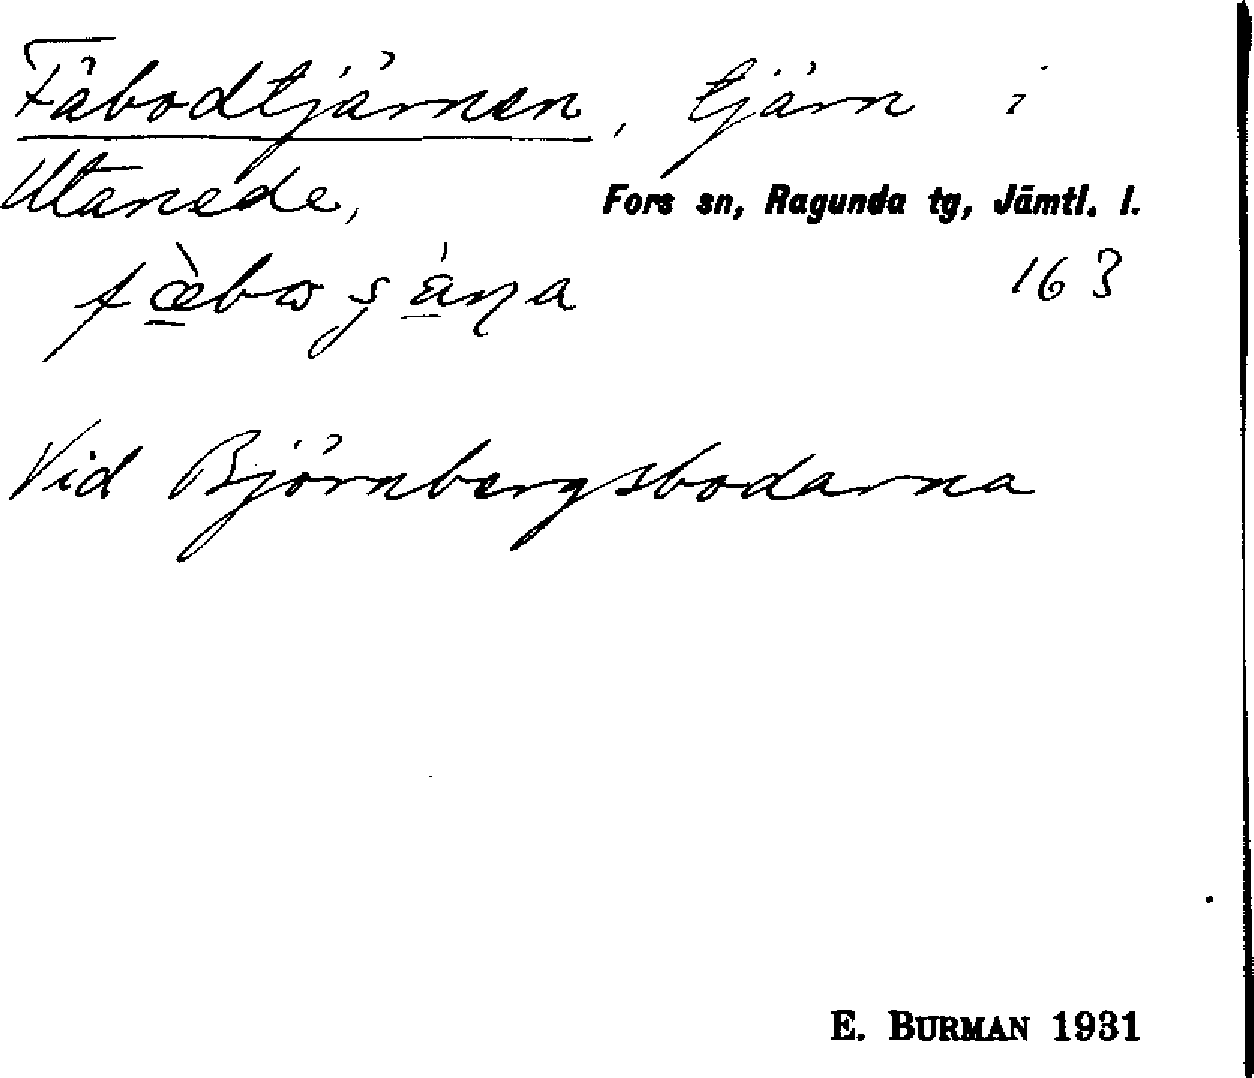 Fäbodtjärnen, tjärn i
Utanede, Fors sn, Ragunda tg, Jämtl. l.
163
Vid Björnbergsbodarna
E. BURMAN 1931